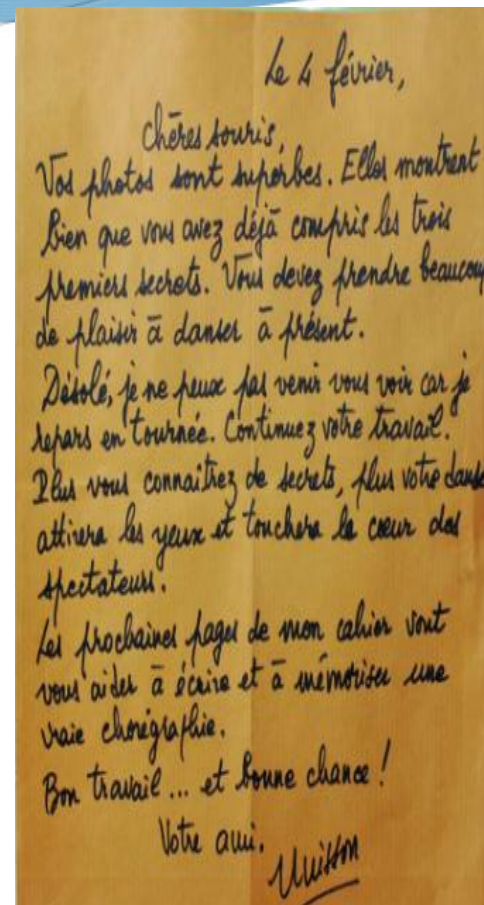 Le 4 février,
Chères souris,
Vos photos sont superbes. Elles montrent
bien que vous avez déjà compris les trois
premiers secrets. Vous devez prendre beaucoup
de plaisir à danser à présent.
Désolé, je ne peux pas venir vous voir car je
repars en tournée. Continuez votre travail.
Plus vous connaitrez de secrets, plus votre danse
attirera les yeux et touchera le cœur des
spectateurs.
Les prochaines pages de mon cahier vont
vous aider à écrire et à mémoriser une
vraie chorégraphie.
Bon travail... et bonne chance !
Votre ami.
Unisson